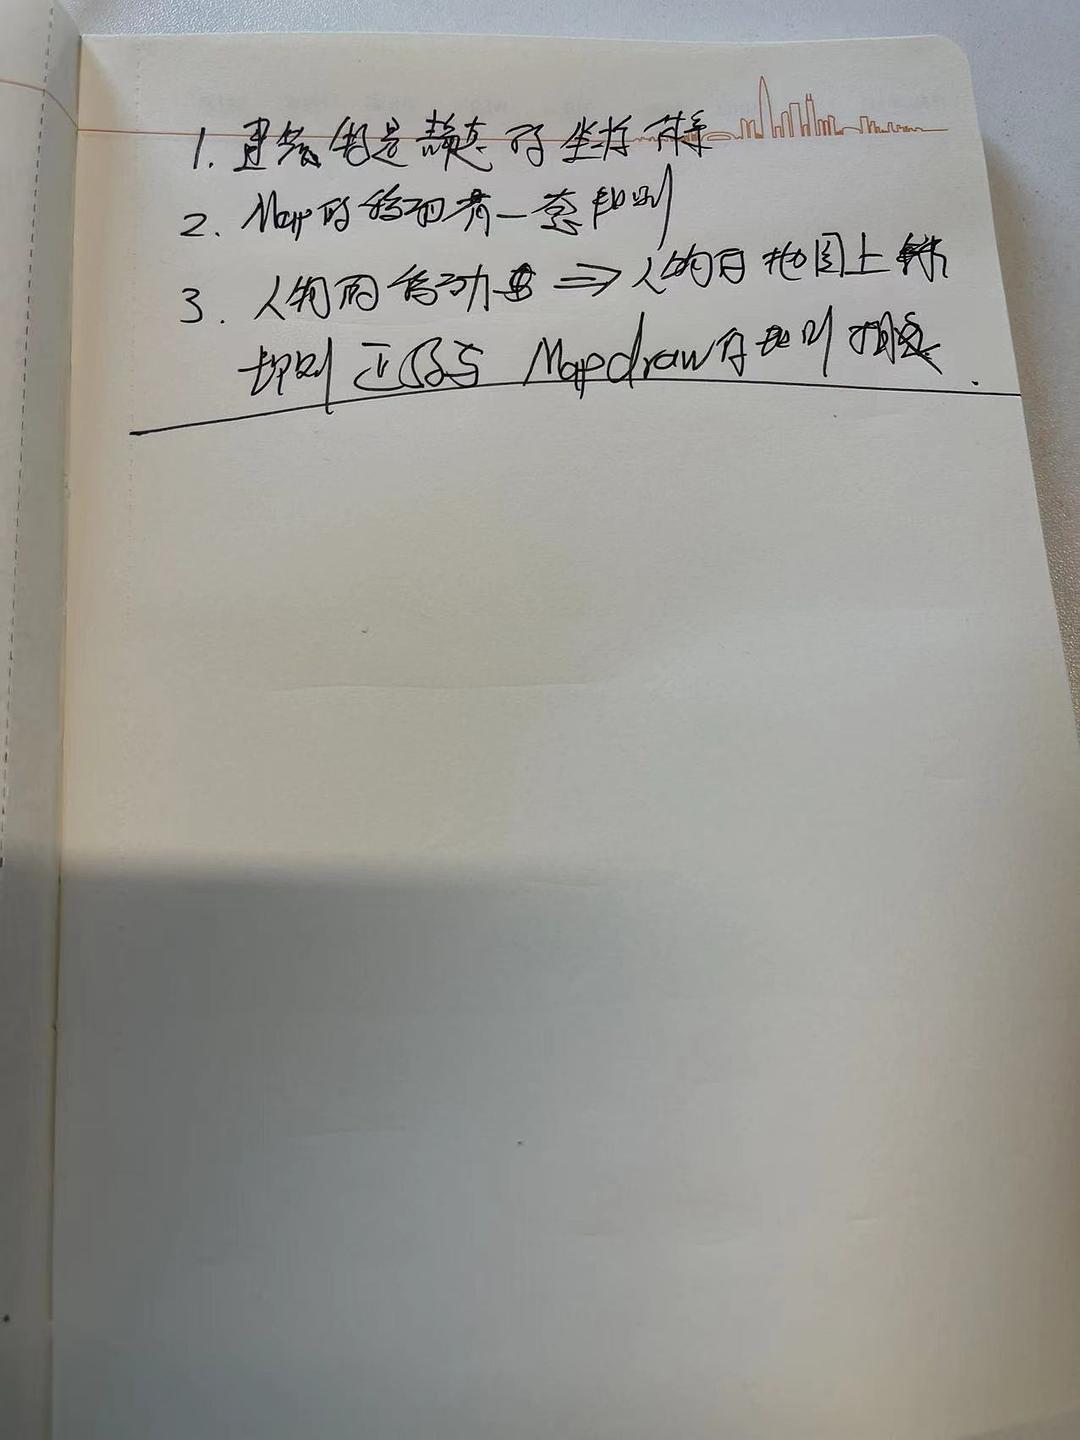 1. 建筑都是静态的坐标体系
2. Map的移动有一套规则
3. 人物的移动 ⇒ 人物在地图上
规则 正好与 Mapdraw 的规则相反.